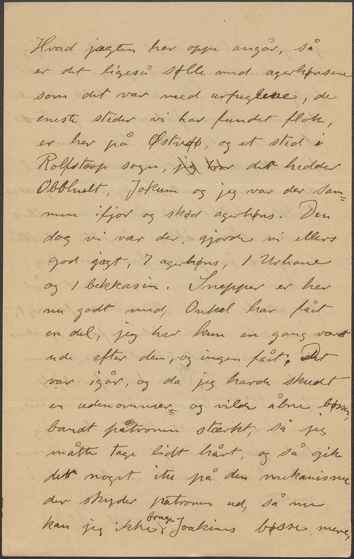 Hvad jagten her oppe angår, så
er det ligeså sølle med agerhønsene
som det var med urfuglene, de
eneste steder vi har fundet flok,
er her på Østrup, og et sted i
Rolfstorp sogn, jeg tror det hedder
Obbhult, Jokum og jeg var der sam=
men ifjor og skød agerhøns. Den
dag vi var der, gjorde vi ellers
god jagt, 7 agerhøns, 1 Urhane
og 1 bekkasin. Snepper er her
nu godt med, Onkel har fået
en del, jeg har kun en gang været
ude efter dem, og ingen fået. Det
var igår, og da jeg havde skudt
en udenominær= og vilde åbne bøssen,
bandt patronen stærkt, så jeg
måtte tage lidt hårt, og så gik
det noget itu på den mekanisme
der skyder patronen ud, så nu
kan jeg ikke bruge Joakims bøsse mere,